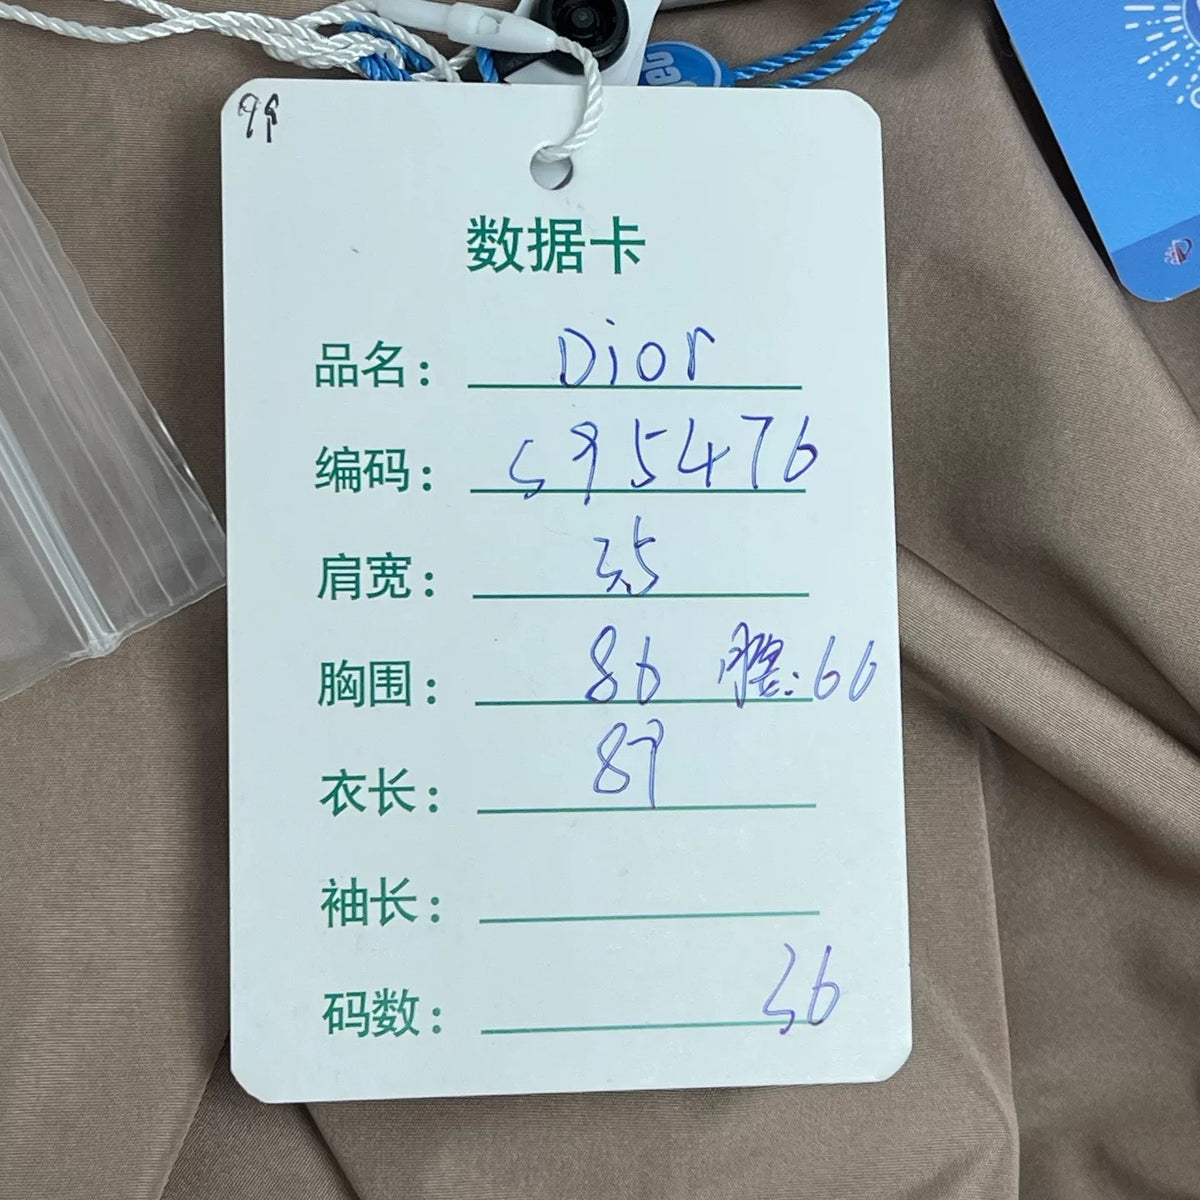 99
数据卡
品名： Dior
编码： 595476
肩宽： 35
胸围： 86 腰：66
衣长： 89
袖长：
码数： 36